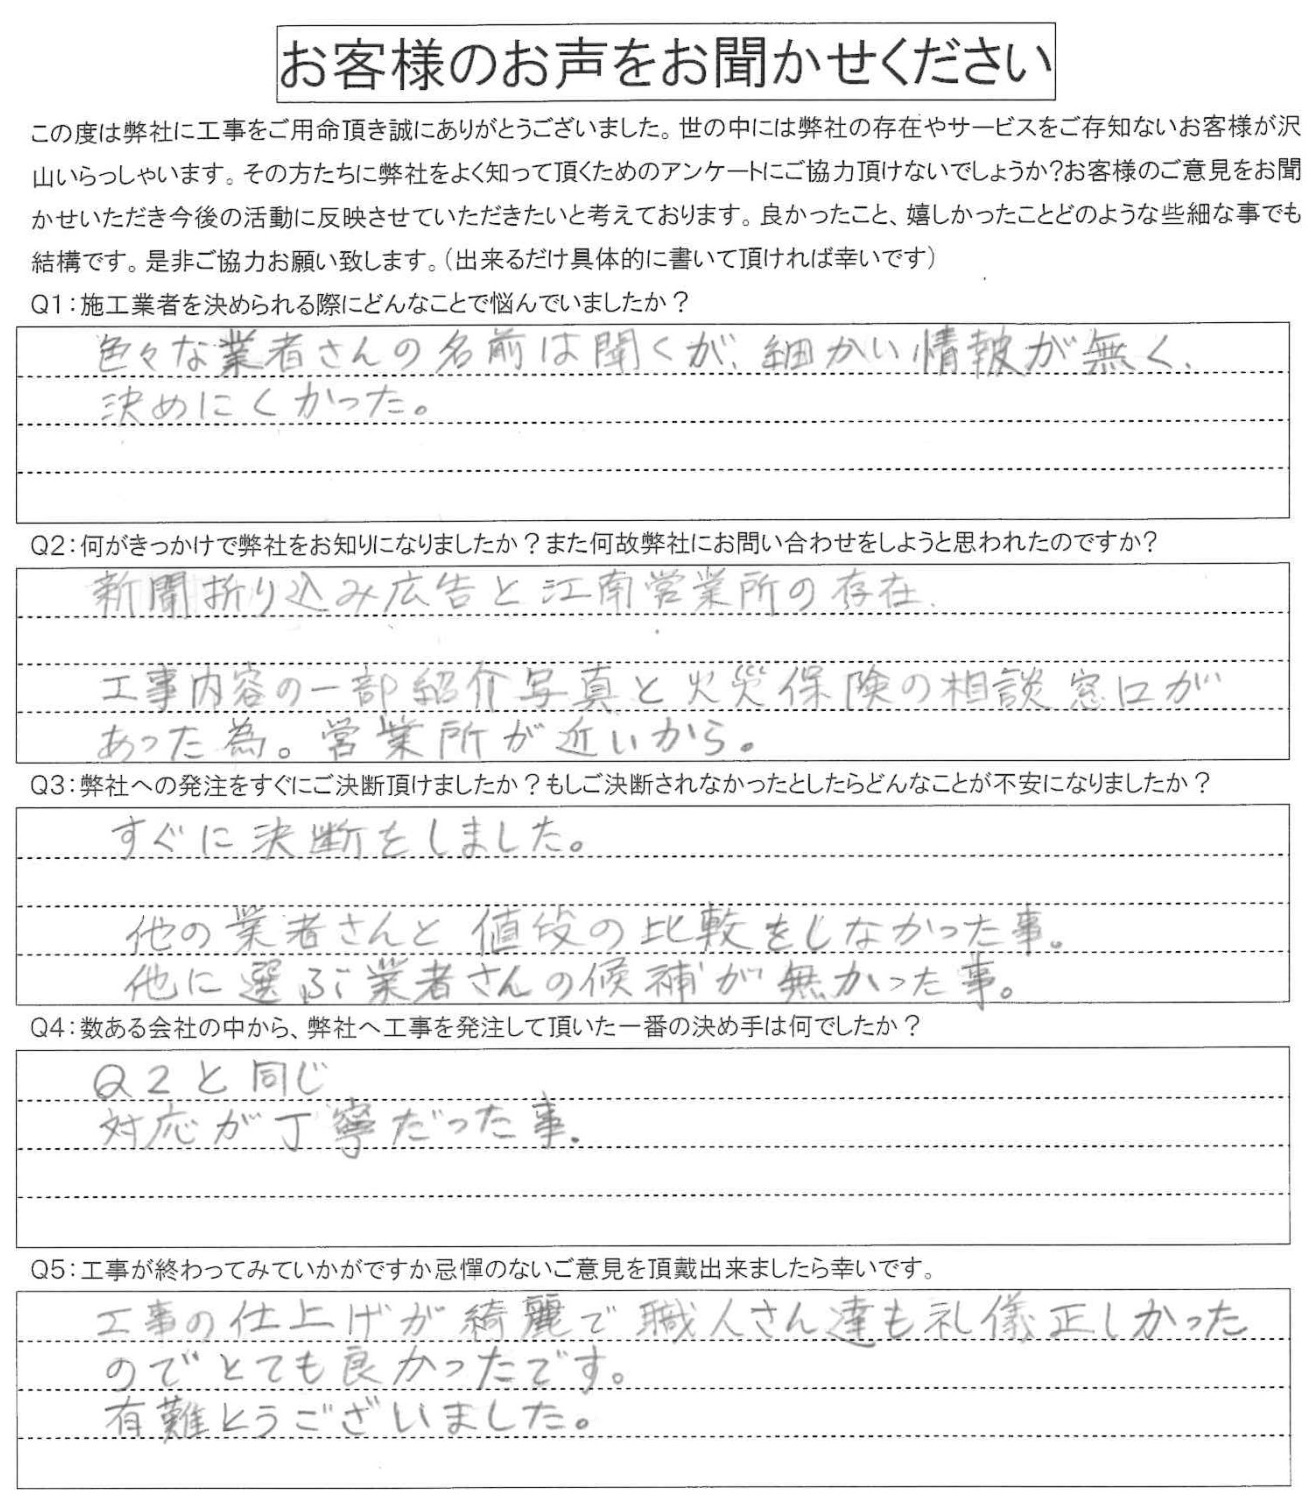 お客様のお声をお聞かせください
この度は弊社に工事をご用命頂き誠にありがとうございました。世の中には弊社の存在やサービスをご存知ないお客様が沢
山いらっしゃいます。その方たちに弊社をよく知って頂くためのアンケートにご協力頂けないでしょうか?お客様のご意見をお聞
かせいただき今後の活動に反映させていただきたいと考えております。良かったこと、嬉しかったことどのような些細な事でも
結構です。是非ご協力お願い致します。(出来るだけ具体的に書いて頂ければ幸いです)
Q1:施工業者を決められる際にどんなことで悩んでいましたか?
色々な業者さんの名前は聞くが、細かい情報が無く、
決めにくかった。
Q2:何がきっかけで弊社をお知りになりましたか?また何故弊社にお問い合わせをしようと思われたのですか?
新聞折り込み広告と江南営業所の存在.
工事内容の一部紹介写真と火災保険の相談窓口が
あった為。営業所が近いから。
Q3:弊社への発注をすぐにご決断頂けましたか?もしご決断されなかったとしたらどんなことが不安になりましたか?
すぐに決断をしました。
他の業者さんと値段の比較をしなかった事。
他に選ぶ業者さんの候補が無かった事。
Q4:数ある会社の中から、弊社へ工事を発注して頂いた一番の決め手は何でしたか?
Q2と同じ
対応が丁寧だった事.
Q5:工事が終わってみていかがですか忌憚のないご意見を頂戴出来ましたら幸いです。
工事の仕上げが綺麗で職人さん達も礼儀正しかった
のでとても良かったです。
有難とうございました。